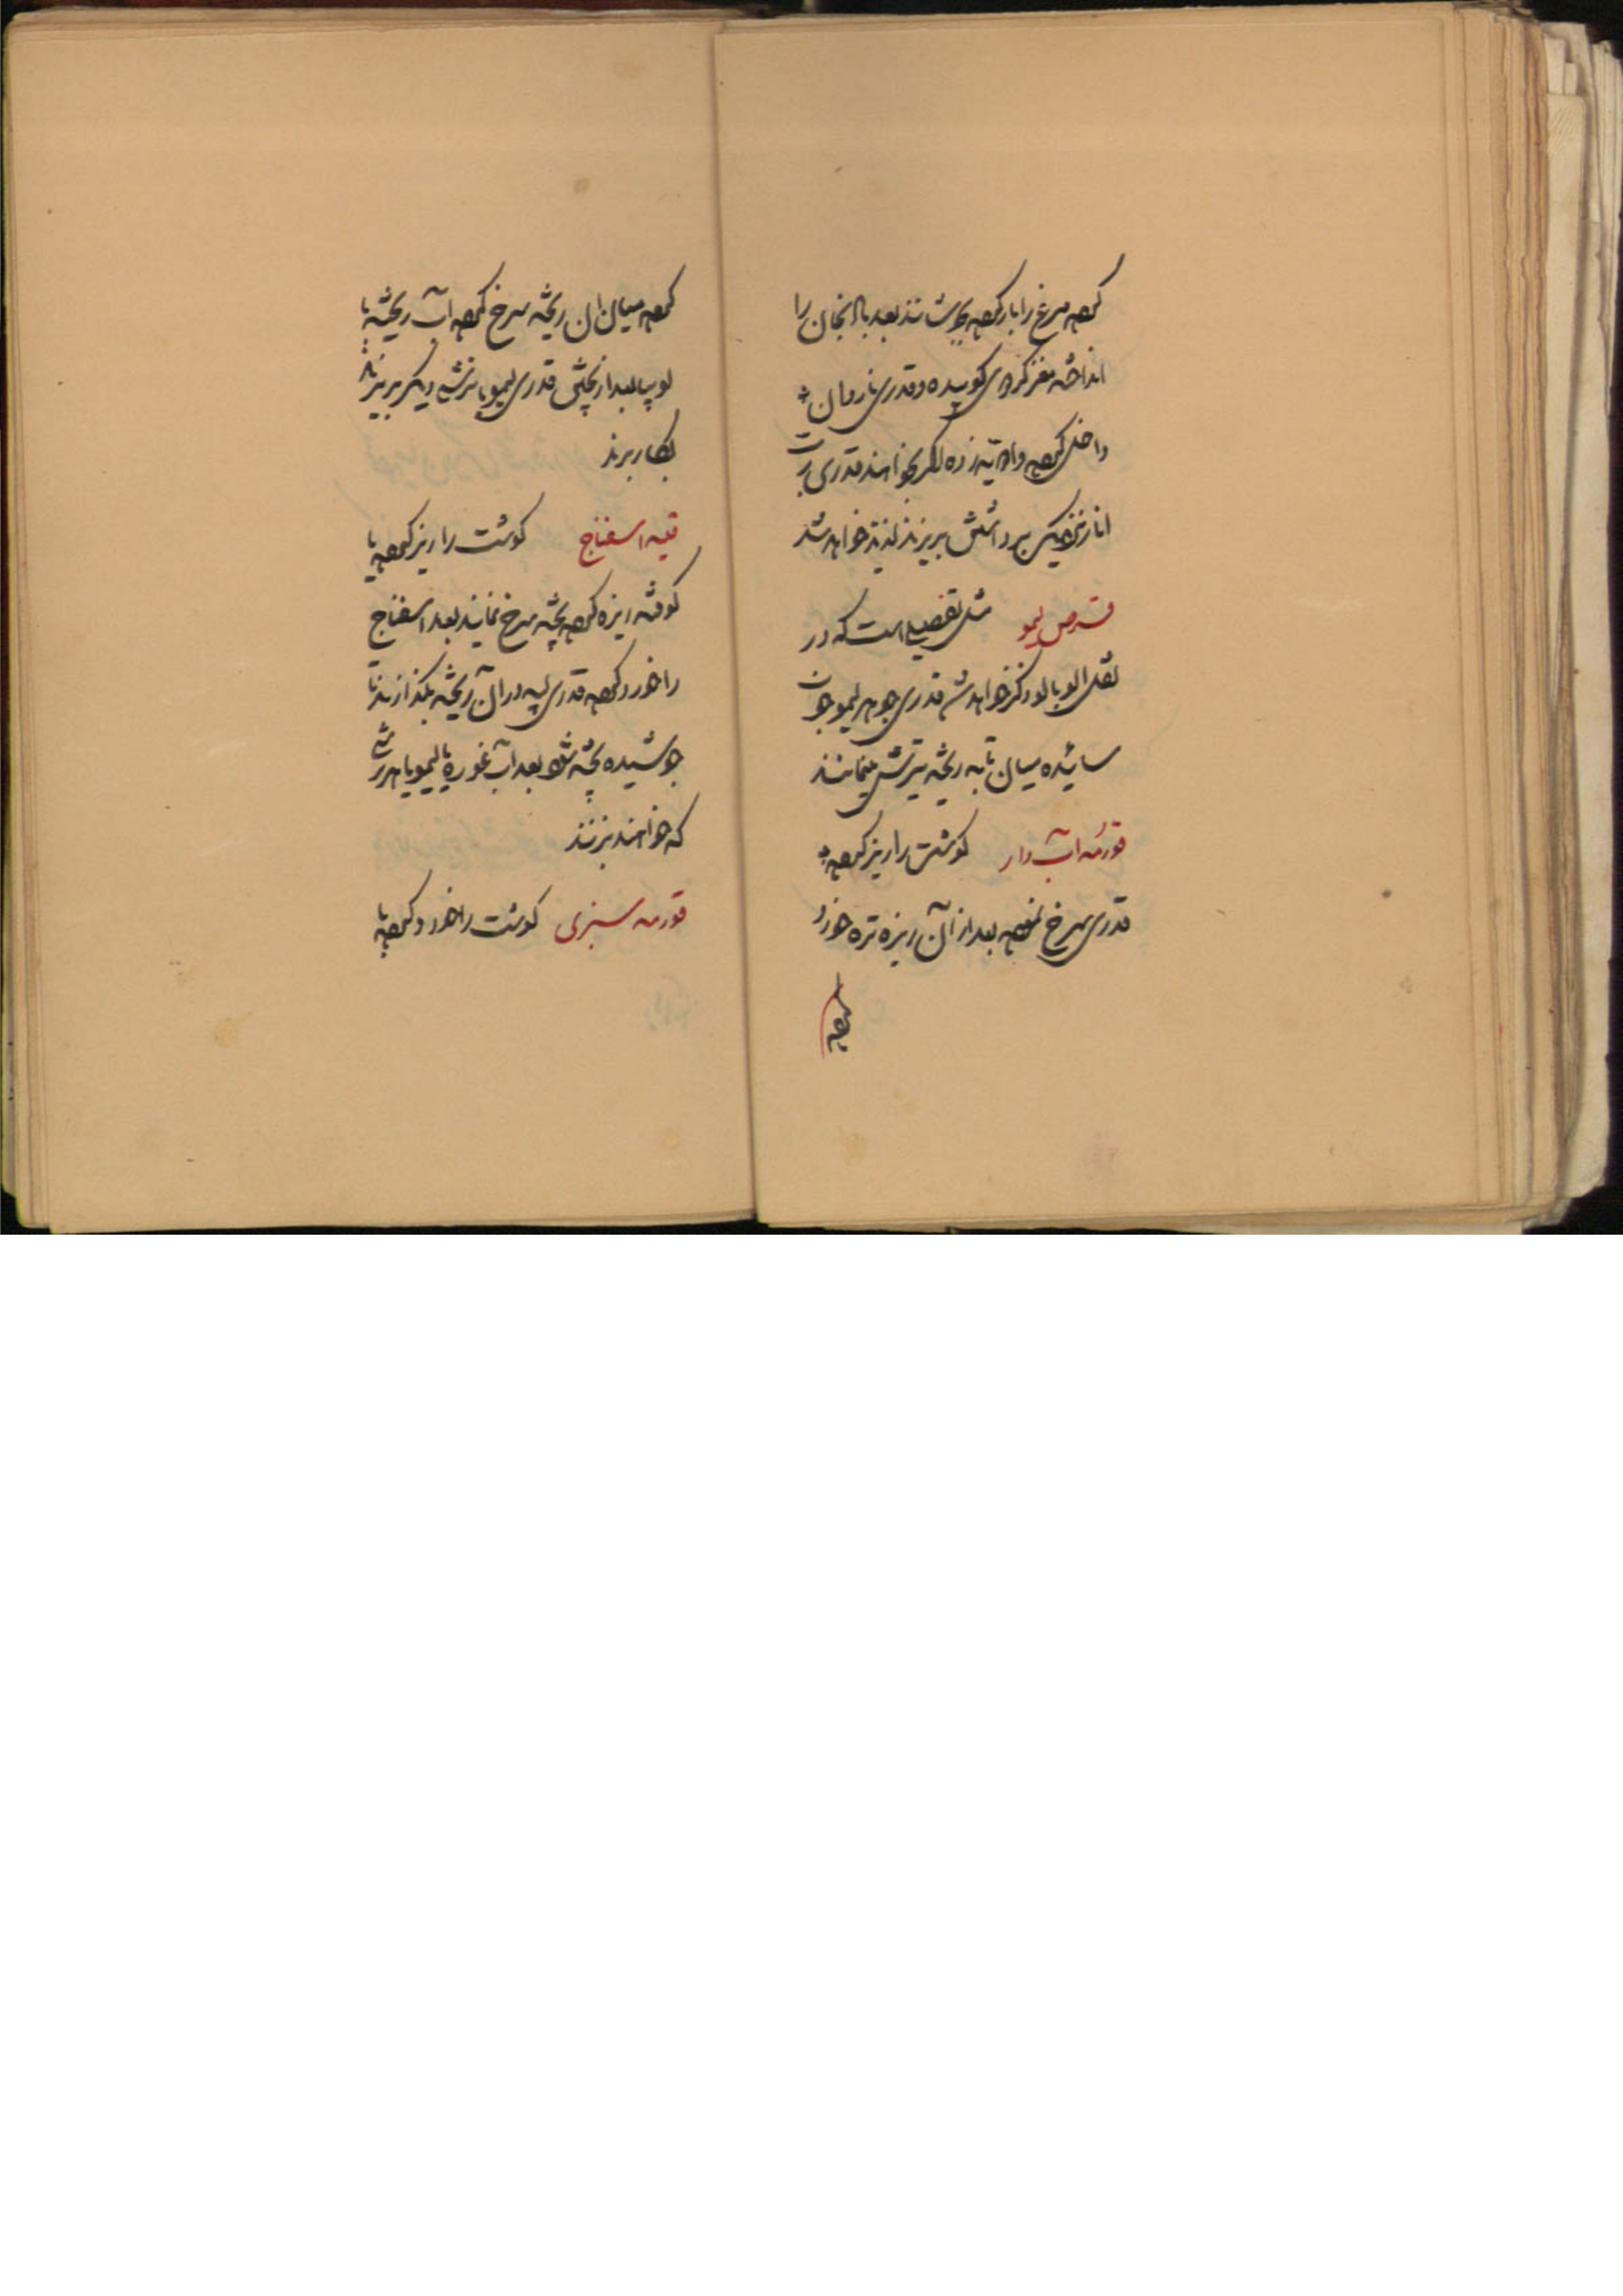 کرده مرغ را بار کرده بجوشانند بعد بادنجان را
انداخته مغز گردوی کوبیده و قدری نار دان
داخل کرده وادویه زده اگر بخواهند قدری رب
انار نزدیک برداشتنش بریزند لذیذ خواهد شد
قرص لیمو مثل تفصیلی است که در
نقل الوبالو ذکر خواهد شد قدری جوهر لیمو جوان
سائیده میان تابه ریخته ترش مینمایند
قورمه آب دار گوشت را ریز کرده به
قدری سرخ نموده بعد از آن ریزه تره خورد
کرده
کرده میان ان ریخته سرخ کرده آب ریخته با
لوبیا بعد از پختن قدری لیمو یا ترشی دیگر بریزند
بکار برند
قیمه اسفناج گوشت را ریز کرده یا
کوفته ریزه کرده پخته سرخ نمایند بعد اسفناج
را خورد کرده قدری لپه در آن ریخته بگذارند تا
جوشیده پخته شود بعد آب غوره یا لیمو یا هر ترشی
که خواهند بزنند
قورمه سبزی گوشت را خورد کرده با